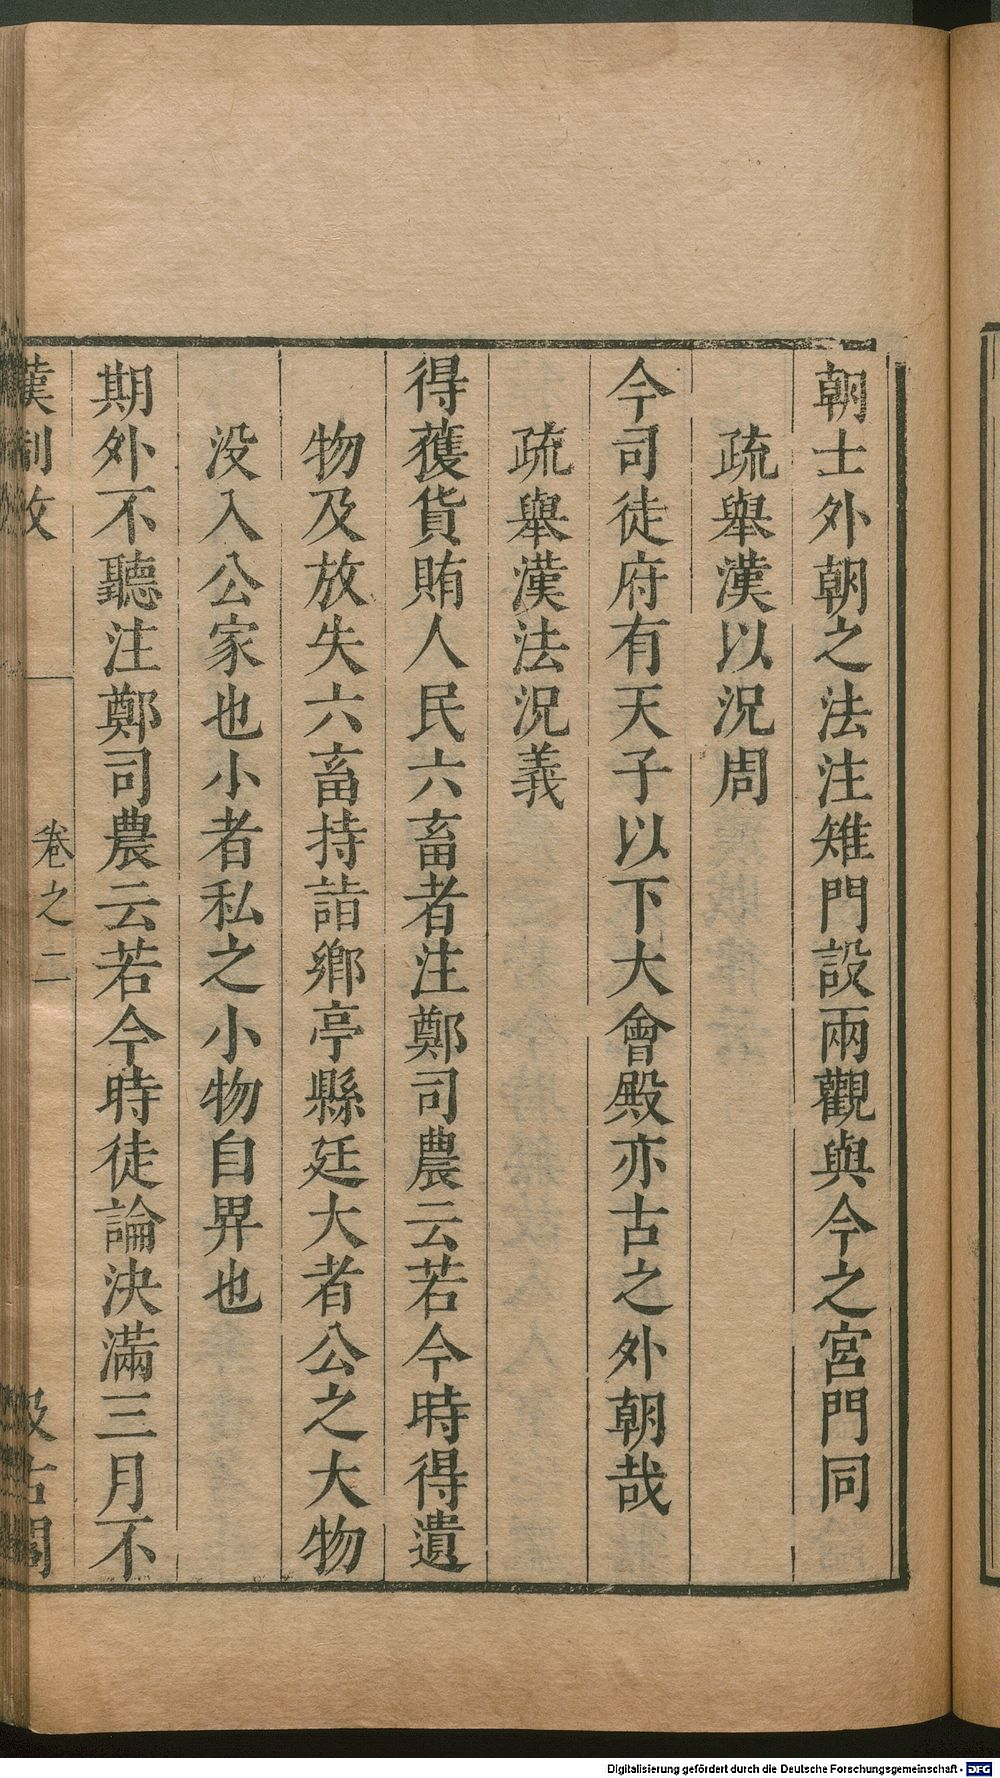 朝士外朝之法注雉門設兩觀與今之宮門同
疏舉漢以況周
今司徒府有天子以下大會殿亦古之外朝哉
疏舉漢法況義
得獲貨賄人民六畜者注鄭司農云若今時得遺
物及放失六畜持詣鄉亭縣廷大者公之大物
没入公家也小者私之小物自畀也
期外不聽注鄭司農云若今時徒論決滿三月不
漢制攷 卷之二 汲古閣
Digitalisierung gefördert durch die Deutsche Forschungsgemeinschaft - DFG